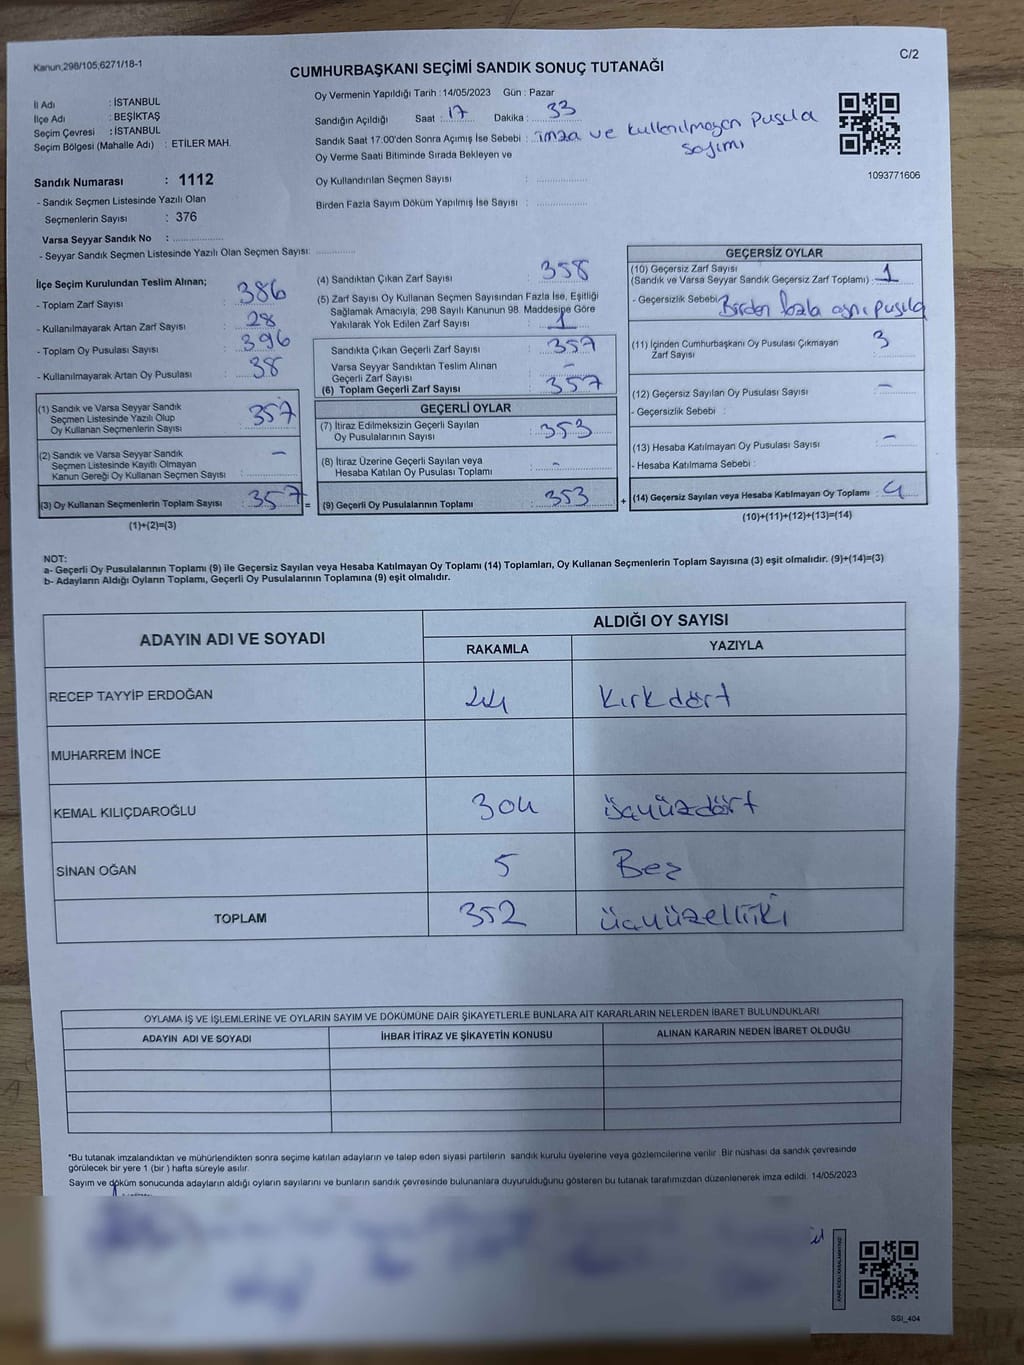 Kanun;298/105;6271/18-1
C/2
CUMHURBAŞKANI SEÇİMİ SANDIK SONUÇ TUTANAĞI
İl Adı : İSTANBUL
İlçe Adı : BEŞİKTAŞ
Seçim Çevresi : İSTANBUL
Seçim Bölgesi (Mahalle Adı) : ETİLER MAH.
Sandık Numarası : 1112
- Sandık Seçmen Listesinde Yazılı Olan
Seçmenlerin Sayısı : 376
Varsa Seyyar Sandık No :
- Seyyar Sandık Seçmen Listesinde Yazılı Olan Seçmen Sayısı:
Oy Vermenin Yapıldığı Tarih :14/05/2023 Gün : Pazar
Sandığın Açıldığı Saat : 17 Dakika : 33
Sandık Saat 17:00'den Sonra Açımış İse Sebebi : imza ve kullanılmayan pusula
sayımı
Oy Verme Saati Bitiminde Sırada Bekleyen ve
Oy Kullandırılan Seçmen Sayısı :
Birden Fazla Sayım Döküm Yapılmış İse Sayısı :
1093771606
İlçe Seçim Kurulundan Teslim Alınan;
- Toplam Zarf Sayısı : 386
- Kullanılmayarak Artan Zarf Sayısı : 28
- Toplam Oy Pusulası Sayısı : 396
- Kullanılmayarak Artan Oy Pusulası : 38
(1) Sandık ve Varsa Seyyar Sandık
Seçmen Listesinde Yazılı Olup
Oy Kullanan Seçmenlerin Sayısı : 357
(2) Sandık ve Varsa Seyyar Sandık
Seçmen Listesinde Kayıtlı Olmayan
Kanun Gereği Oy Kullanan Seçmen Sayısı : -
(3) Oy Kullanan Seçmenlerin Toplam Sayısı : 357 =
(1)+(2)=(3)
(4) Sandıktan Çıkan Zarf Sayısı : 358
(5) Zarf Sayısı Oy Kullanan Seçmen Sayısından Fazla İse, Eşitliği
Sağlamak Amacıyla; 298 Sayılı Kanunun 98. Maddesine Göre
Yakılarak Yok Edilen Zarf Sayısı : 1
Sandıkta Çıkan Geçerli Zarf Sayısı : 357
Varsa Seyyar Sandıktan Teslim Alınan
Geçerli Zarf Sayısı : -
(6) Toplam Geçerli Zarf Sayısı : 357
GEÇERLİ OYLAR
(7) İtiraz Edilmeksizin Geçerli Sayılan
Oy Pusulalarının Sayısı : 353
(8) İtiraz Üzerine Geçerli Sayılan veya
Hesaba Katılan Oy Pusulası Toplamı : -
(9) Geçerli Oy Pusulalarının Toplamı : 353 +
GEÇERSİZ OYLAR
(10) Geçersiz Zarf Sayısı
(Sandık ve Varsa Seyyar Sandık Geçersiz Zarf Toplamı) : 1
- Geçersizlik Sebebi : Birden fazla aynı pusula
(11) İçinden Cumhurbaşkanı Oy Pusulası Çıkmayan
Zarf Sayısı : 3
(12) Geçersiz Sayılan Oy Pusulası Sayısı : -
- Geçersizlik Sebebi :
(13) Hesaba Katılmayan Oy Pusulası Sayısı : -
- Hesaba Katılmama Sebebi :
(14) Geçersiz Sayılan veya Hesaba Katılmayan Oy Toplamı : 4
(10)+(11)+(12)+(13)=(14)
NOT:
a- Geçerli Oy Pusulalarının Toplamı (9) ile Geçersiz Sayılan veya Hesaba Katılmayan Oy Toplamı (14) Toplamları, Oy Kullanan Seçmenlerin Toplam Sayısına (3) eşit olmalıdır. (9)+(14)=(3)
b- Adayların Aldığı Oyların Toplamı, Geçerli Oy Pusulalarının Toplamına (9) eşit olmalıdır.
ADAYIN ADI VE SOYADI ALDIĞI OY SAYISI
RAKAMLA YAZIYLA
RECEP TAYYİP ERDOĞAN 44 Kırkdört
MUHARREM İNCE
KEMAL KILIÇDAROĞLU 304 üçyüzdört
SİNAN OĞAN 5 Beş
TOPLAM 352 üçyüzelliiki
OYLAMA İŞ VE İŞLEMLERİNE VE OYLARIN SAYIM VE DÖKÜMÜNE DAİR ŞİKAYETLERLE BUNLARA AİT KARARLARIN NELERDEN İBARET BULUNDUKLARI
ADAYIN ADI VE SOYADI İHBAR İTİRAZ VE ŞİKAYETİN KONUSU ALINAN KARARIN NEDEN İBARET OLDUĞU
*Bu tutanak imzalandıktan ve mühürlendikten sonra seçime katılan adayların ve talep eden siyasi partilerin sandık kurulu üyelerine veya gözlemcilerine verilir. Bir nüshası da sandık çevresinde
görülecek bir yere 1 (bir ) hafta süreyle asılır.
Sayım ve döküm sonucunda adayların aldığı oyların sayılarını ve bunların sandık çevresinde bulunanlara duyurulduğunu gösteren bu tutanak tarafımızdan düzenlenerek imza edildi. 14/05/2023
SSI_404